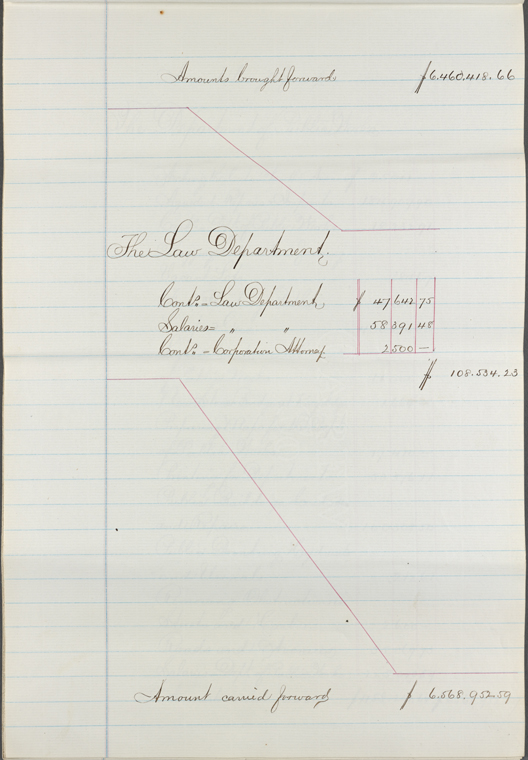 Amounts brought forward $6.460.418.66
The Law Department,
Conts = Law Department, $ 47 642 75
Salaries = " " 58 391 48
Conts - Corporation Attorney 2 500 —
$ 108.534.23
Amount carried forward $ 6.568.952.59